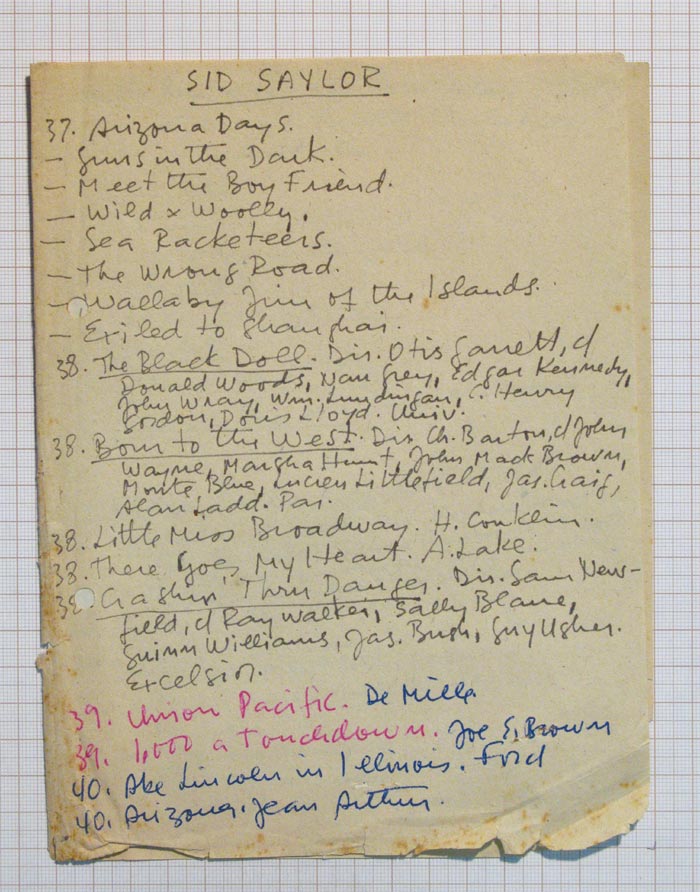 SID SAYLOR
37. Arizona Days.
- Guns in the Dark.
- Meet the Boy Friend.
- Wild & Woolly.
- Sea Racketeers.
- The Wrong Road.
- Wallaby Jim of the Islands.
- Exiled to Shanghai.
38. The Black Doll. Dir. Otis Garrett, d
Donald Woods, Nan Grey, Edgar Kennedy,
John Wray, Wm. Lundigan, C. Henry
Gordon, Doris Lloyd. Univ.
38. Born to the West. Dir. Ch. Barton, d John
Wayne, Marsha Hunt, John Mack Brown,
Monte Blue, Lucien Littlefield, Jas. Craig,
Alan Ladd. Par.
38. Little Miss Broadway. H. Conklin.
38. There Goes My Heart. A. Lake.
Crashin' Thru Danger. Dir. Sam New-
field, d Ray Walker, Sally Blane,
Guinn Williams, Jas. Bush, Guy Usher.
Excelsior.
39. Union Pacific. De Mille
39. 1,000 a Touchdown. Joe E. Brown
40. Abe Lincoln in Illinois. Ford
40. Arizona. Jean Arthur.